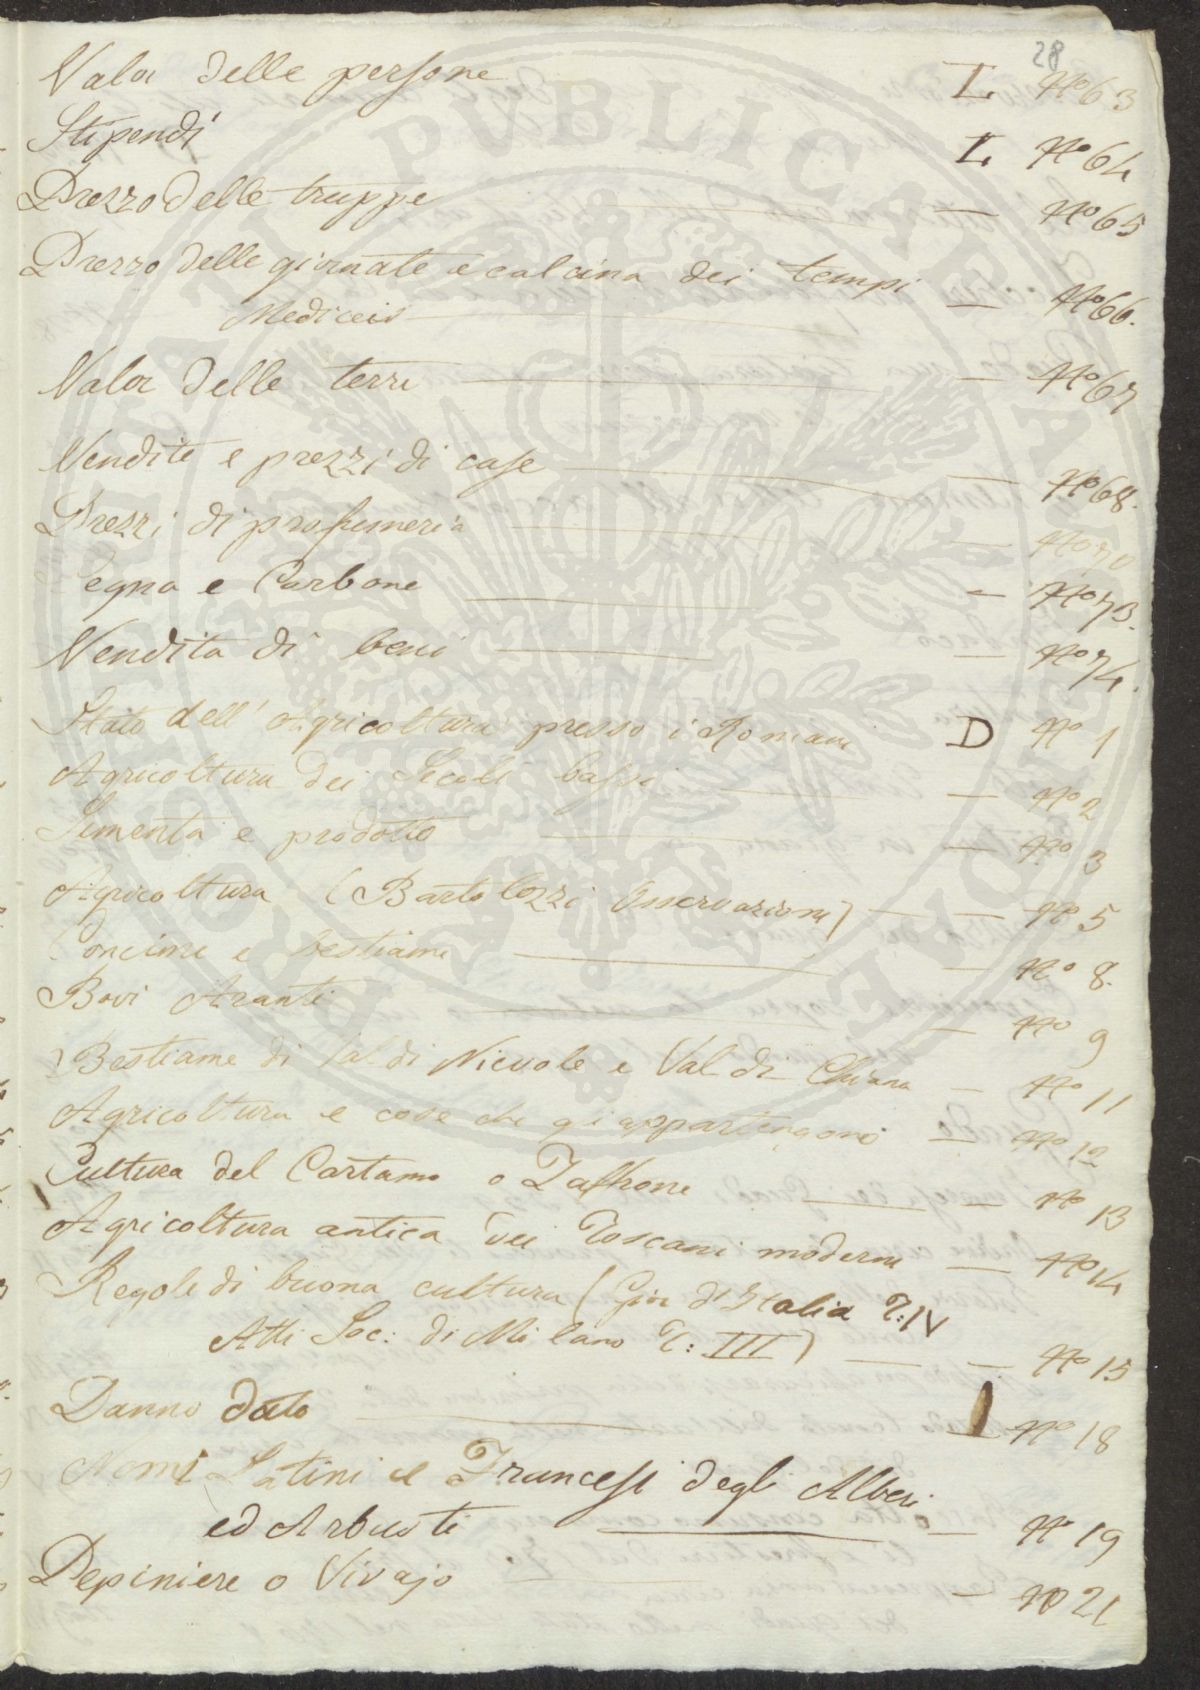 28
Valor delle persone L. Nº 63
Stipendi L. Nº 64
Prezzo delle truppe — Nº 65
Prezzo delle giornate e calcina dei tempi
Medicei — Nº 66.
Valor delle terre — Nº 67
Vendite e prezzi di case — Nº 68.
Prezzi di profumeria — Nº 70
Legna e Carbone — Nº 73.
Vendita di beni — Nº 74.
Stato dell' Agricoltura presso i Romani D Nº 1
Agricoltura dei Secoli bassi — Nº 2
Sementa e prodotto — Nº 3
Agricoltura (Bartolozzi Osservazioni) — Nº 5
Concime e bestiame — Nº 8.
Bovi Aranti — Nº 9
Bestiame di Val di Nievole e Val di Chiana — Nº 11
Agricoltura e cose che gli appartengono — Nº 12
Cultura del Cartamo o Zaffrone — Nº 13
Agricoltura antica dei Toscani moderni — Nº 14
Regole di buona cultura (Gior d'Italia T: IV
Atti Soc: di Milano T: III) — Nº 15
Danno dato — Nº 18
Nomi Latini e Francesi degli Alberi
ed Arbusti — Nº 19
Pepiniere o Vivajo — Nº 21